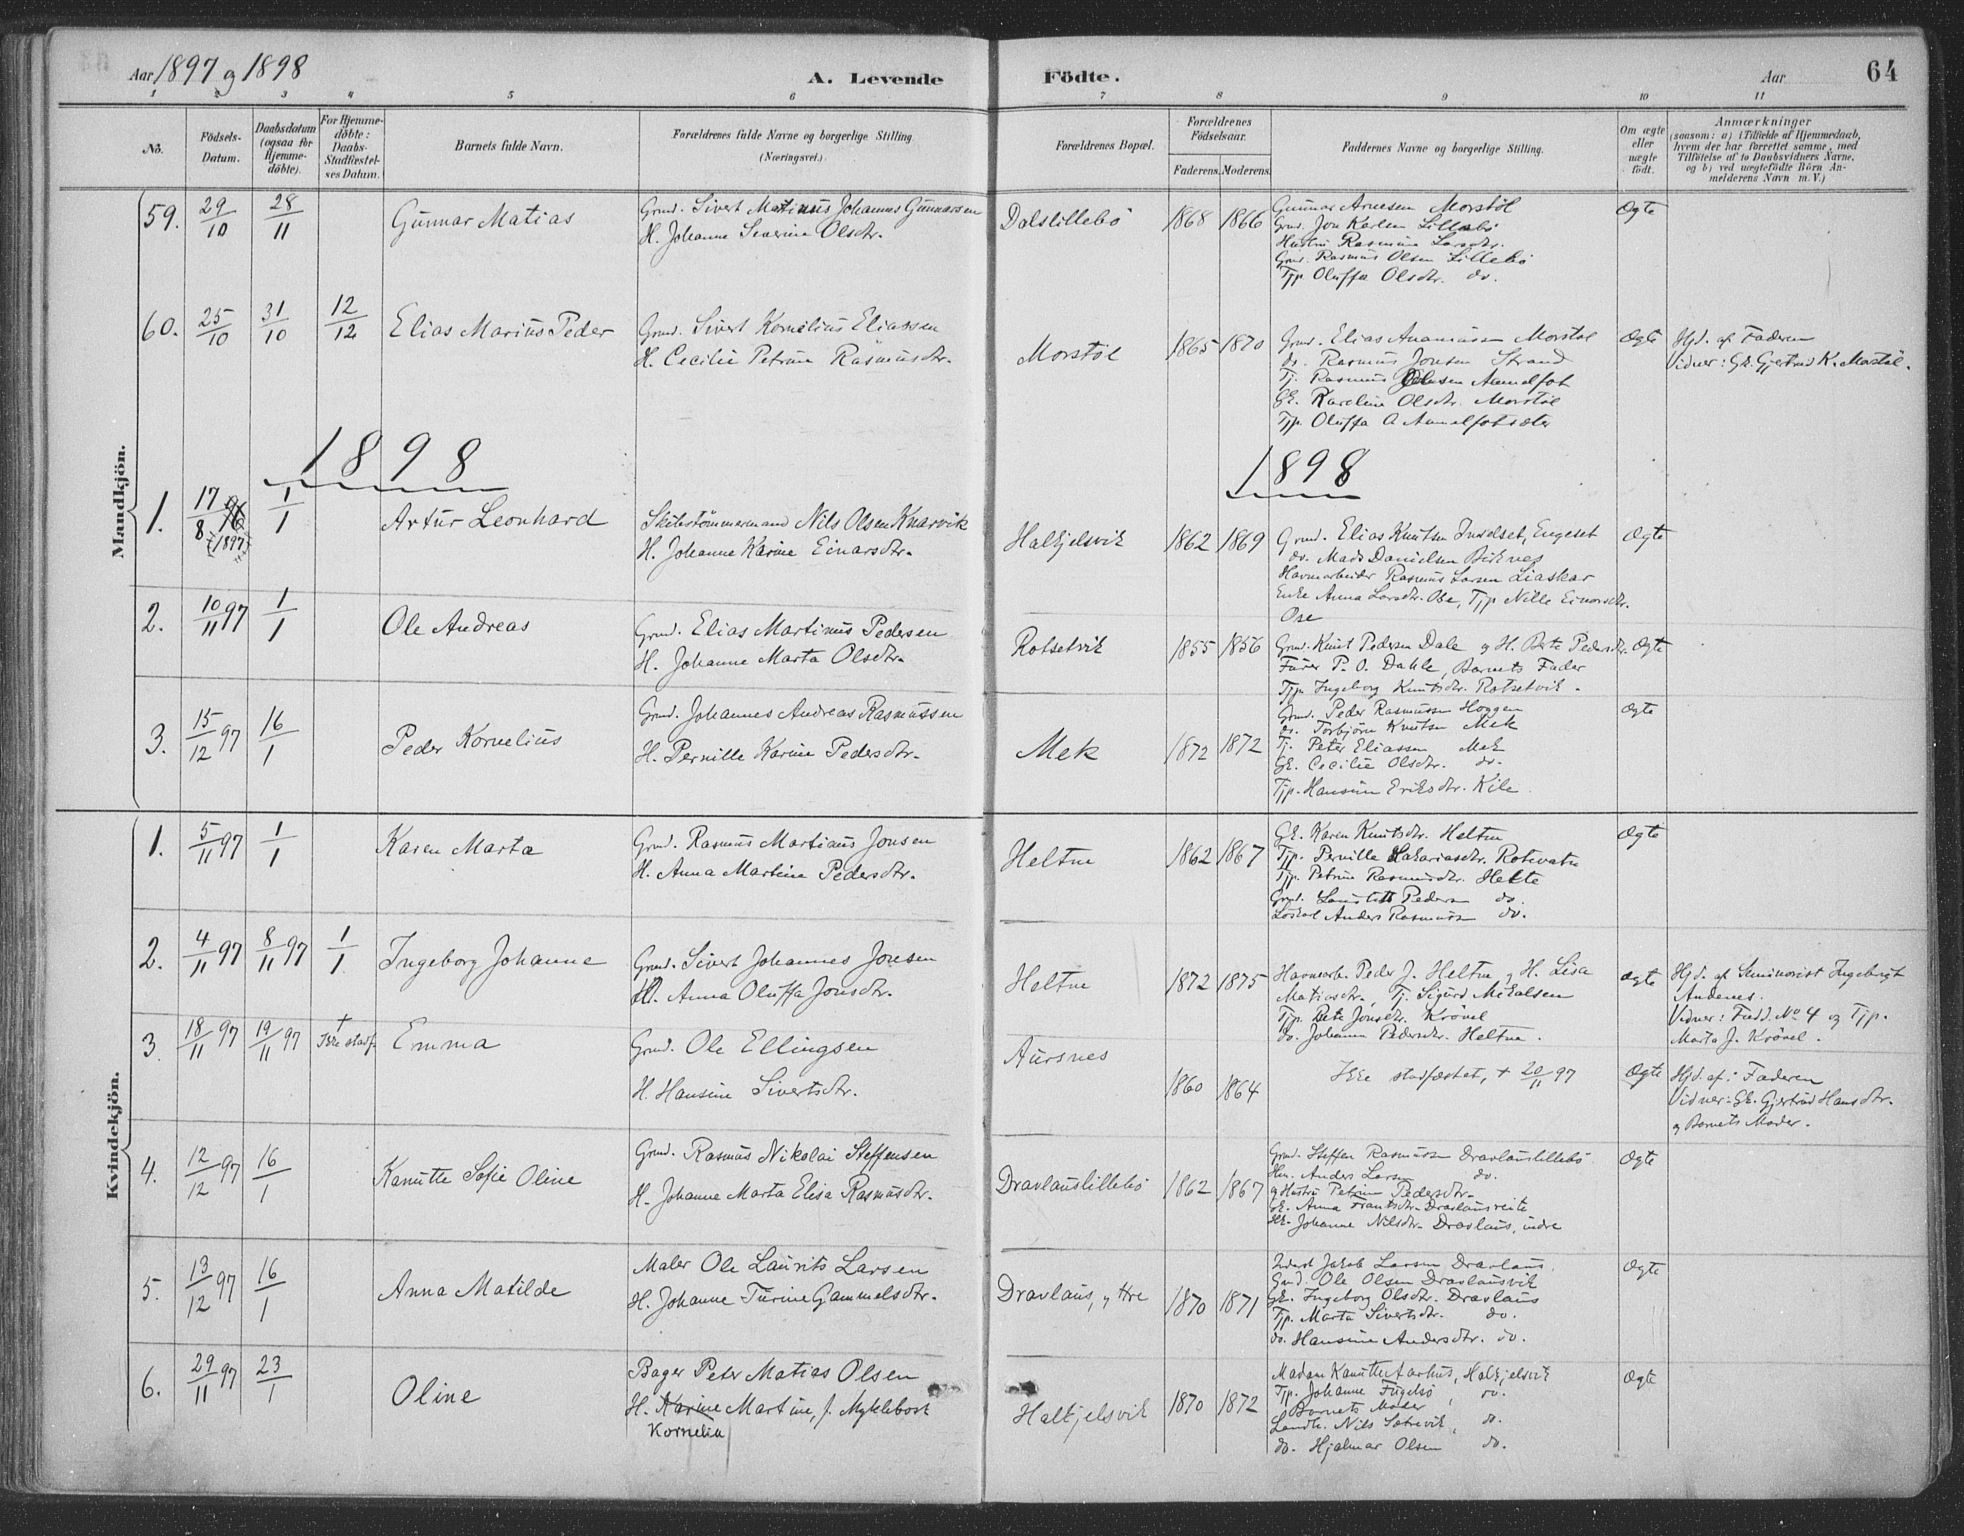 Aar 1897 og 1898
A. Levende Födte.
Aar
64
1 2 3 4 5 6 7 8 9 10 11
No.
Födsels-Datum.
Daabsdatum (ogsaa for Hjemme-döbte).
For Hjemme-döbte: Daabs-Stadfæstel-ses Datum.
Barnets fulde Navn.
Forældrenes fulde Navne og borgerlige Stilling.
(Næringsvei.)
Forældrenes Bopæl.
Forældrenes Födselsaar.
Faderens. Moderens.
Faddernes Navne og borgerlige Stilling.
Om ægte eller uægte födt.
Anmærkninger
(saasom: a) i Tilfælde af Hjemmedaab, hvem der har forrettet samme, med Tilföielse af to Daabsvidners Navne, og b) ved uægtefödte Börn An-melderens Navn m. V.)
Mandkjön.
59. 29/10 28/11 Gunnar Matias
Grmd. Sivert Matinus Johannes Gunnarsen
H. Johanne Severine Olsdtr.
Dalslillebö 1868 1866
Gunnar Arnesen Morstöl
Grmd. Jon Karlsen Lillebö
Hustru Rasmine Larsdtr.
Grmd. Rasmus Olsen Lillebö
Tjp Oluffa Olsdtr. do.
Ægte
60. 25/10 31/10 12/12 Elias Marius Peder
Grmd. Sivert Kornelius Eliassen
H. Cecilie Petrine Rasmusdtr.
Morstöl 1865 1870
Grmd. Elias Ananiassen Morstöl
do. Rasmus Jonsen Strand
Tj. Rasmus Olsen Aamelfot
GE. Karoline Olsdtr. Morstöl
Tjp. Oluffa A Aamelfotsæter
Ægte
Hjd. af Faderen
Vidner: GE. Gjertrud K. Morstöl.
1898
1898
1. 17/8 (1897) 1/1 Artur Leonhard
Skibstömmermand Nils Olsen Knarvik
H. Johanne Karine Einarsdtr.
Halkjelsvik 1862 1869
Grmd. Elias Knutsen Indset, Engeset
do. Mads Danielsen Birknes
Havnarbeider Rasmus Larsen Liaskar
Enke Anna Larsdtr. Ose, Tjp Nille Einarsdtr.
Ose
Ægte
2. 10/11 97 1/1 Ole Andreas
Grmd. Elias Martinus Pedersen
H. Johanne Marta Olsdtr.
Rotsetvik 1855 1856
Grmd. Knut Pedersen Dale og H. Berte Pedersdtr.
Furer P. O. Dahle, Barnets Fader
Tjp. Ingeborg Knutsdtr. Rotsetvik.
Ægte
3. 15/12 97 16/1 Peder Kornelius
Grmd. Johannes Andreas Rasmussen
H. Pernille Karine Pedersdtr.
Mek 1872 1872
Grmd. Peder Rasmussen Hoggen
do. Torbjörn Knutsen Mek
Tj. Peter Eliassen Mek
GE. Cecilie Olsdtr. do.
Tjp. Hansine Eriksdtr. Kile
Ægte
Kvindekjön.
1. 5/11 97 1/1 Karen Marta
Grmd. Rasmus Martinus Jonsen
H. Anna Martine Pedersdtr.
Heltne 1862 1867
GE. Karen Knutsdtr. Heltne
Tjp. Pernille Sakariasdtr. Rotevatn
Tjp. Petrine Rasmusdtr. Helte
Grmd. Pedersen do.
Löskarl Anders Rasmussen do.
Ægte
2. 4/11 97 8/11 97 1/1 Ingeborg Johanne
Grmd. Sivert Johannes Jonsen
H. Anna Oluffa Jonsdtr.
Heltne 1872 1875
Havnearb. Peder J. Heltne og H. Lisa
Matiasdtr., Tj. Sigurd Mikalsen
Tjp. Berte Jonsdtr. Krövel
do. Johanne Pedersdtr. Heltne.
Ægte
Hjd. af Seminarist Ingebrigt
Andenes.
Vidner: Fadd. No 4 og Tjp.
Marta J. Krövel.
3. 18/11 97 19/11 97 † Ikke stadf. Emma
Grmd. Ole Ellingsen
H. Hansine Sivertsdtr.
Aursnes 1860 1864
Ikke stadfæstet, † 20/11 97
Ægte
Hjd. af: Faderen
Vidner: GE. Gjertrud Hansdtr.
og Barnets Moder.
4. 12/12 97 16/1 Kanutte Sofie Oline
Grmd. Rasmus Nikolai Steffensen
H. Johanne Marta Elisa Rasmusdtr.
Dravlauslillebö 1862 1867
Grmd. Steffen Rasmussen Dravlauslillebö
Anders Larsen do.
og Hustru Petrine Pedersdtr.
GE. Anna Frantsdtr. Dravlausreite
GE. Johanne Nilsdtr. Dravlaus, indre
Ægte
5. 13/12 97 16/1 Anna Matilde
Maler Ole Laurits Larsen
H. Johanne Turine Gammelsdtr.
Dravlaus, ytre 1870 1871
Jakob Larsen Dravlaus.
Grmd. Ole Olsen Dravlausvik
GE. Ingeborg Olsdtr. Dravlaus
Tjp. Marta Sivertsdtr. do.
do. Hansine Andersdtr. do.
Ægte
6. 29/11 97 23/1 Oline
Bager Peter Matias Olsen
H. Karine Martine, f. Myklebost
Kornelia
Halkjelsvik 1870 1872
Madam Kanutte Aarhus, Halkjelsvik
Tjp. Johanne Fugelsö, do.
Barnets Moder
Landh. Nils Sætrevik, do.
do. Hjalmar Olsen do.
Ægte